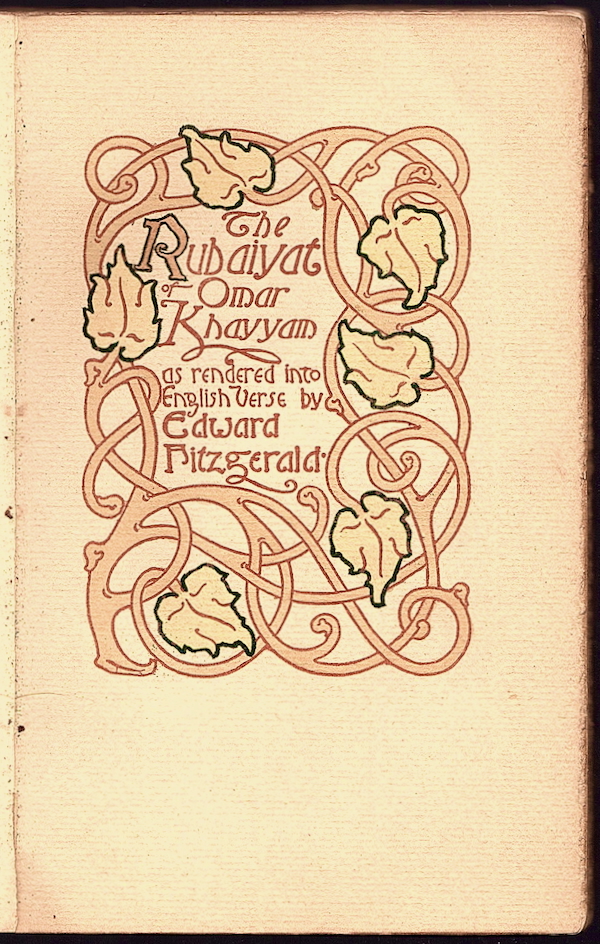 The
Rubaiyat
of Omar
Khayyam
as rendered into
English Verse by
Edward
Fitzgerald·